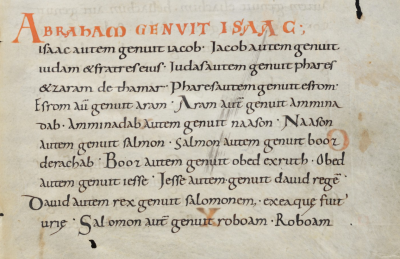 ABRAHAM GENUIT ISAAC·,
isaac autem genuit iacob· Jacob autem genuit
iudam & fratres eius· Judas autem genuit phares
& zaram de thamar· Phares autem genuit esrom·
Esrom aut̄ genuit aram· Aram aut̄ genuit ammina
dab· Amminadab autem genuit naason· Naason
autem genuit salmon· Salmon autem genuit booz
de rachab· Booz autem genuit obed ex ruth· Obed
autem genuit iesse· Jesse autem genuit dauid regē·
Dauid autem rex genuit salomonem, ex ea que fuit
urie· Salomon aut̄ genuit roboam· Roboam